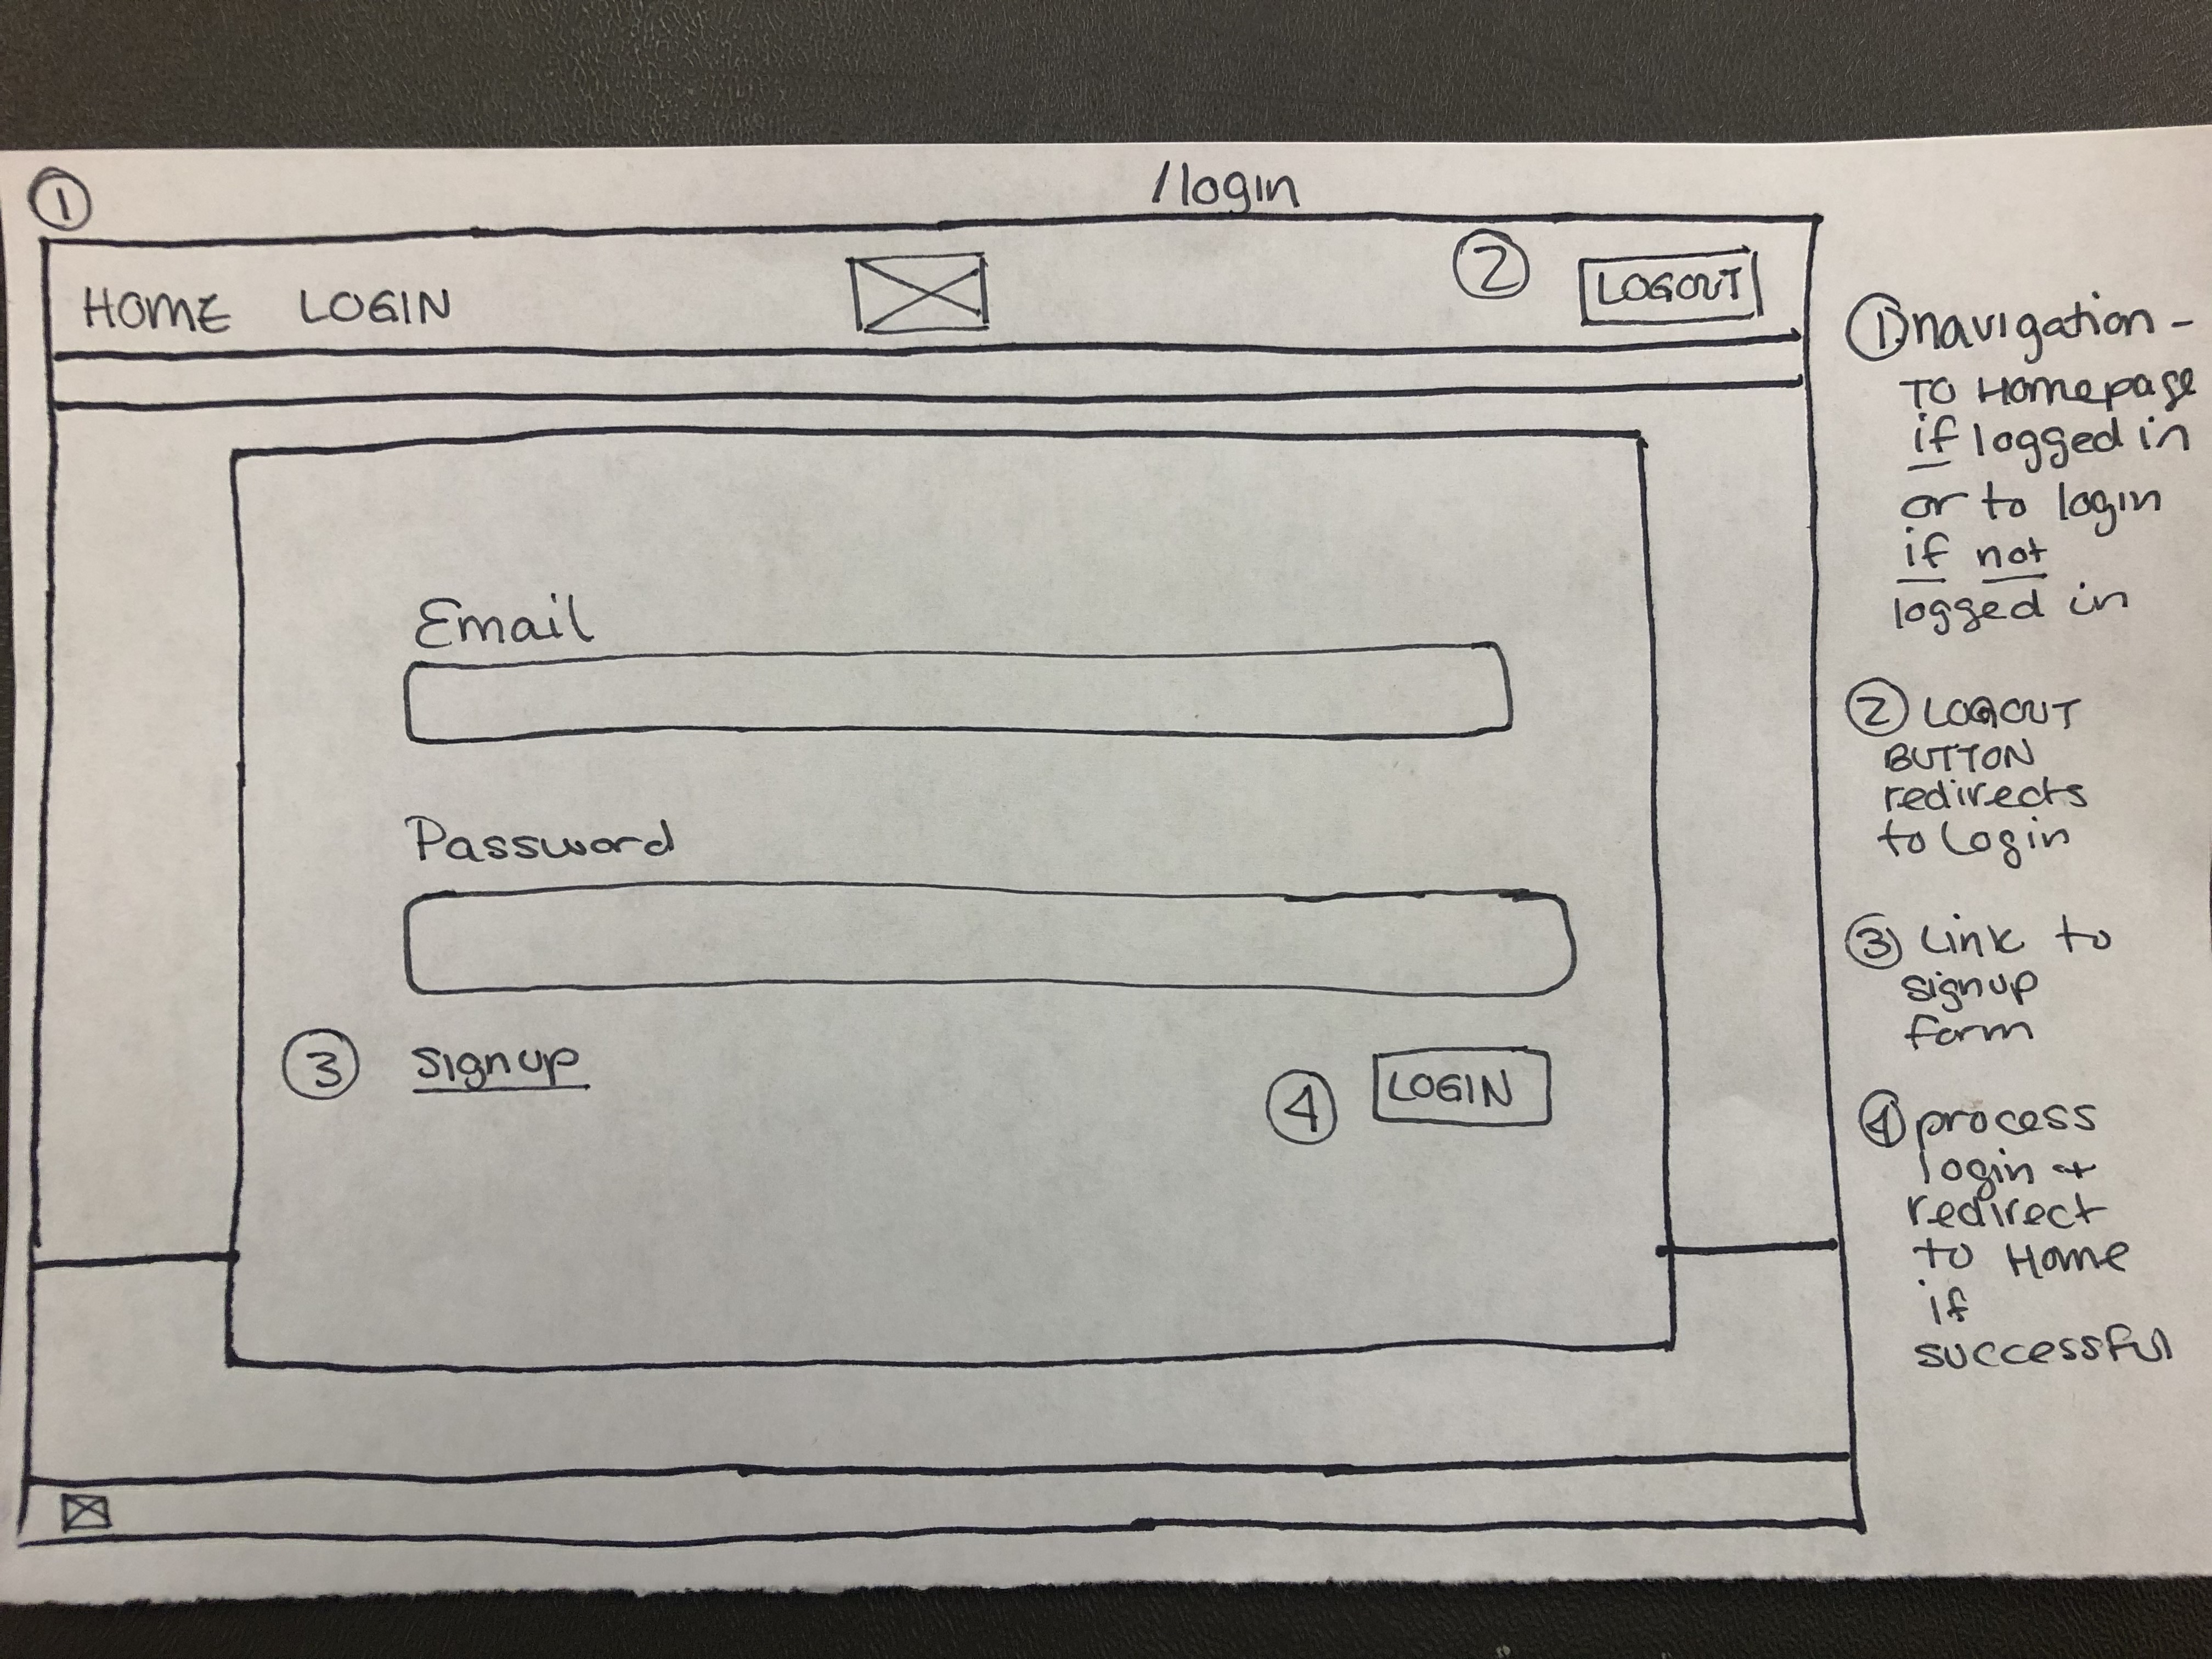 1
/login
HOME LOGIN
2 LOGOUT
Email
Password
3 signup
4 LOGIN
1 navigation -
TO Homepage
if logged in
or to login
if not
logged in
2 LOGOUT
BUTTON
redirects
to Login
3 Link to
signup
form
4 process
login +
redirect
to Home
if
successful